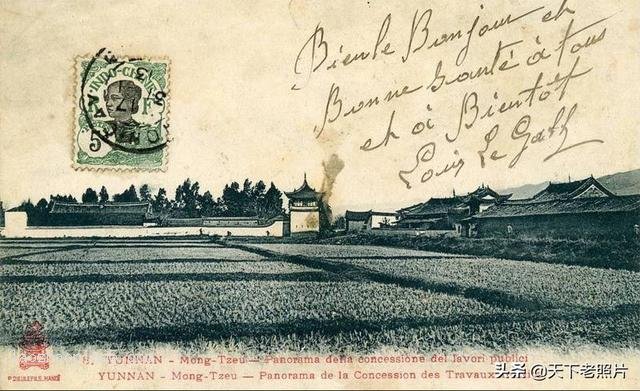 Bieule Bonjour et
Bonne santé à tous
et à Bientôt
Louis Le Gall
INDO-CHINE
5
YUNNAN - Mong-Tzeu — Panorama della concessione dei lavori publici
YUNNAN. - Mong-Tzeu — Panorama de la Concession des Travaux
P. DIEULEFILS, HANOI
头条 @天下老照片